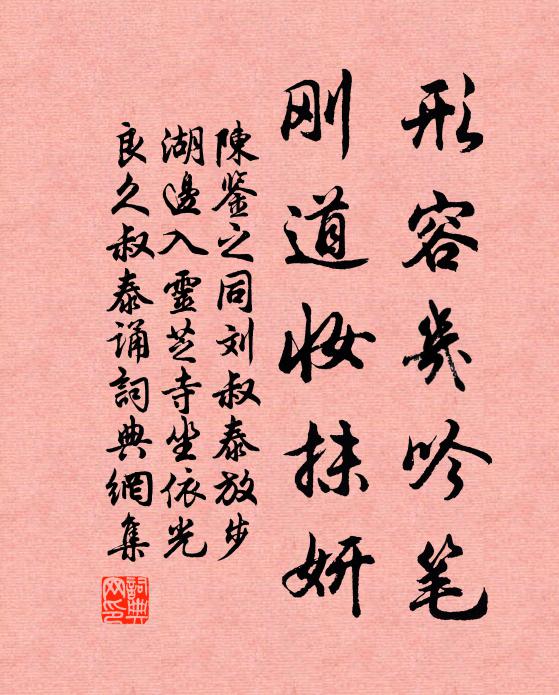 形容幾吟笔
刚道妝抹妍
陳鉴之同刘叔泰放步
湖邊入靈芝寺坐依光
良久叔泰诵詞典網集
詞典網印